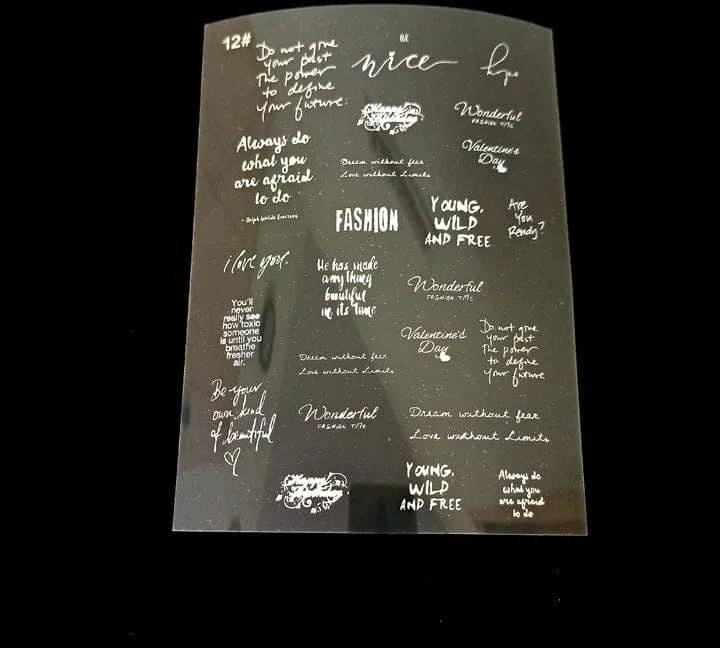 12#
Do not give
your past
the power
to define
your future.
BE
nice
hope
Happy
Birthday
Wonderful
FASHION TIME
Always do
what you
are afraid
to do
- Ralph Waldo Emerson
Dream without fear
Love without Limits
Valentine's
Day
FASHION
YOUNG,
WILD
AND FREE
Are
You
Ready?
i love you.
He has made
anything
beautiful
in its time
Wonderful
FASHION TIME
You'll
never
really see
how toxic
someone
is until you
breathe
fresher
air.
Valentine's
Day
Do not give
your past
the power
to define
your future
Dream without fear
Love without Limits
Be your
own kind
of beautiful
Wonderful
FASHION TIME
Dream without fear
Love without Limits
Happy
Birthday
YOUNG,
WILD
AND FREE
Always do
what you
are afraid
to do